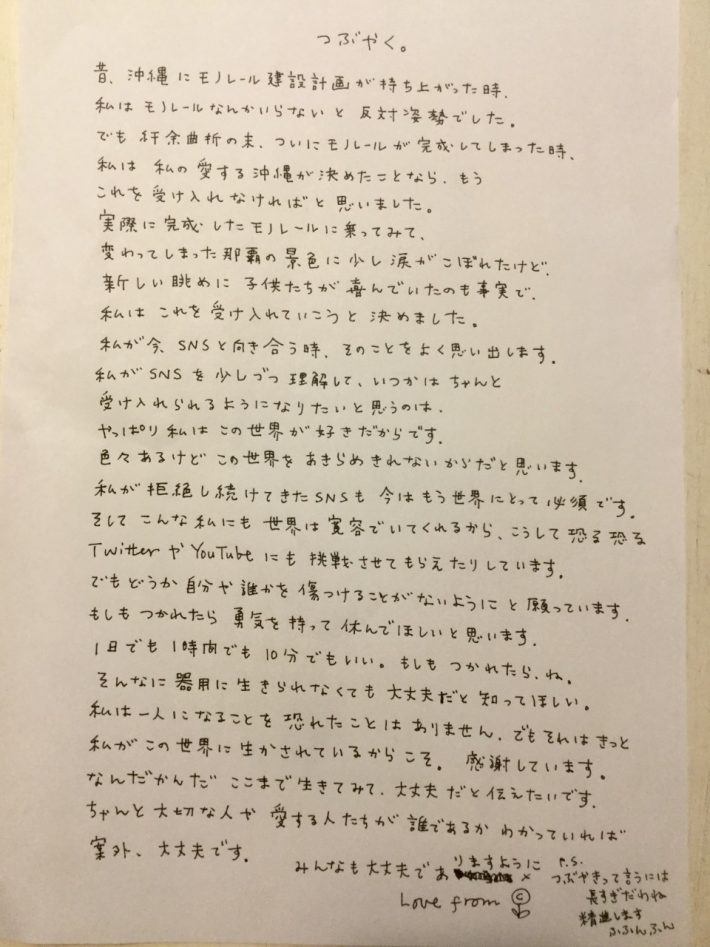 つぶやく。
昔、沖縄にモノレール建設計画が持ち上がった時、
私はモノレールなんかいらないと反対姿勢でした。
でも紆余曲折の末、ついにモノレールが完成してしまった時、
私は私の愛する沖縄が決めたことなら、もう
これを受け入れなければと思いました。
実際に完成したモノレールに乗ってみて、
変わってしまった那覇の景色に少し涙がこぼれたけど、
新しい眺めに子供たちが喜んでいたのも事実で、
私はこれを受け入れていこうと決めました。
私が今、SNSと向き合う時、そのことをよく思い出します。
私がSNSを少しづつ理解して、いつかはちゃんと
受け入れられるようになりたいと思うのは、
やっぱり私はこの世界が好きだからです。
色々あるけどこの世界をあきらめきれないからだと思います。
私が拒絶し続けてきたSNSも今はもう世界にとって必須です。
そしてこんな私にも世界は寛容でいてくれるから、こうして恐る恐る
TwitterやYouTubeにも挑戦させてもらえたりしています。
でもどうか自分や誰かを傷つけることがないようにと願っています。
もしもつかれたら勇気を持って休んでほしいと思います。
1日でも1時間でも10分でもいい。もしもつかれたら、ね。
そんなに器用に生きられなくても大丈夫だと知ってほしい。
私は一人になることを恐れたことはありません、でもそれはきっと
私がこの世界に生かされているからこそ。感謝しています。
なんだかんだここまで生きてみて、大丈夫だと伝えたいです。
ちゃんと大切な人や愛する人たちが誰であるかわかっていれば
案外、大丈夫です。
みんなも大丈夫でありますように
Love from C
P.S.
つぶやきって言うには
長すぎだわね
精進します
ふふんふん